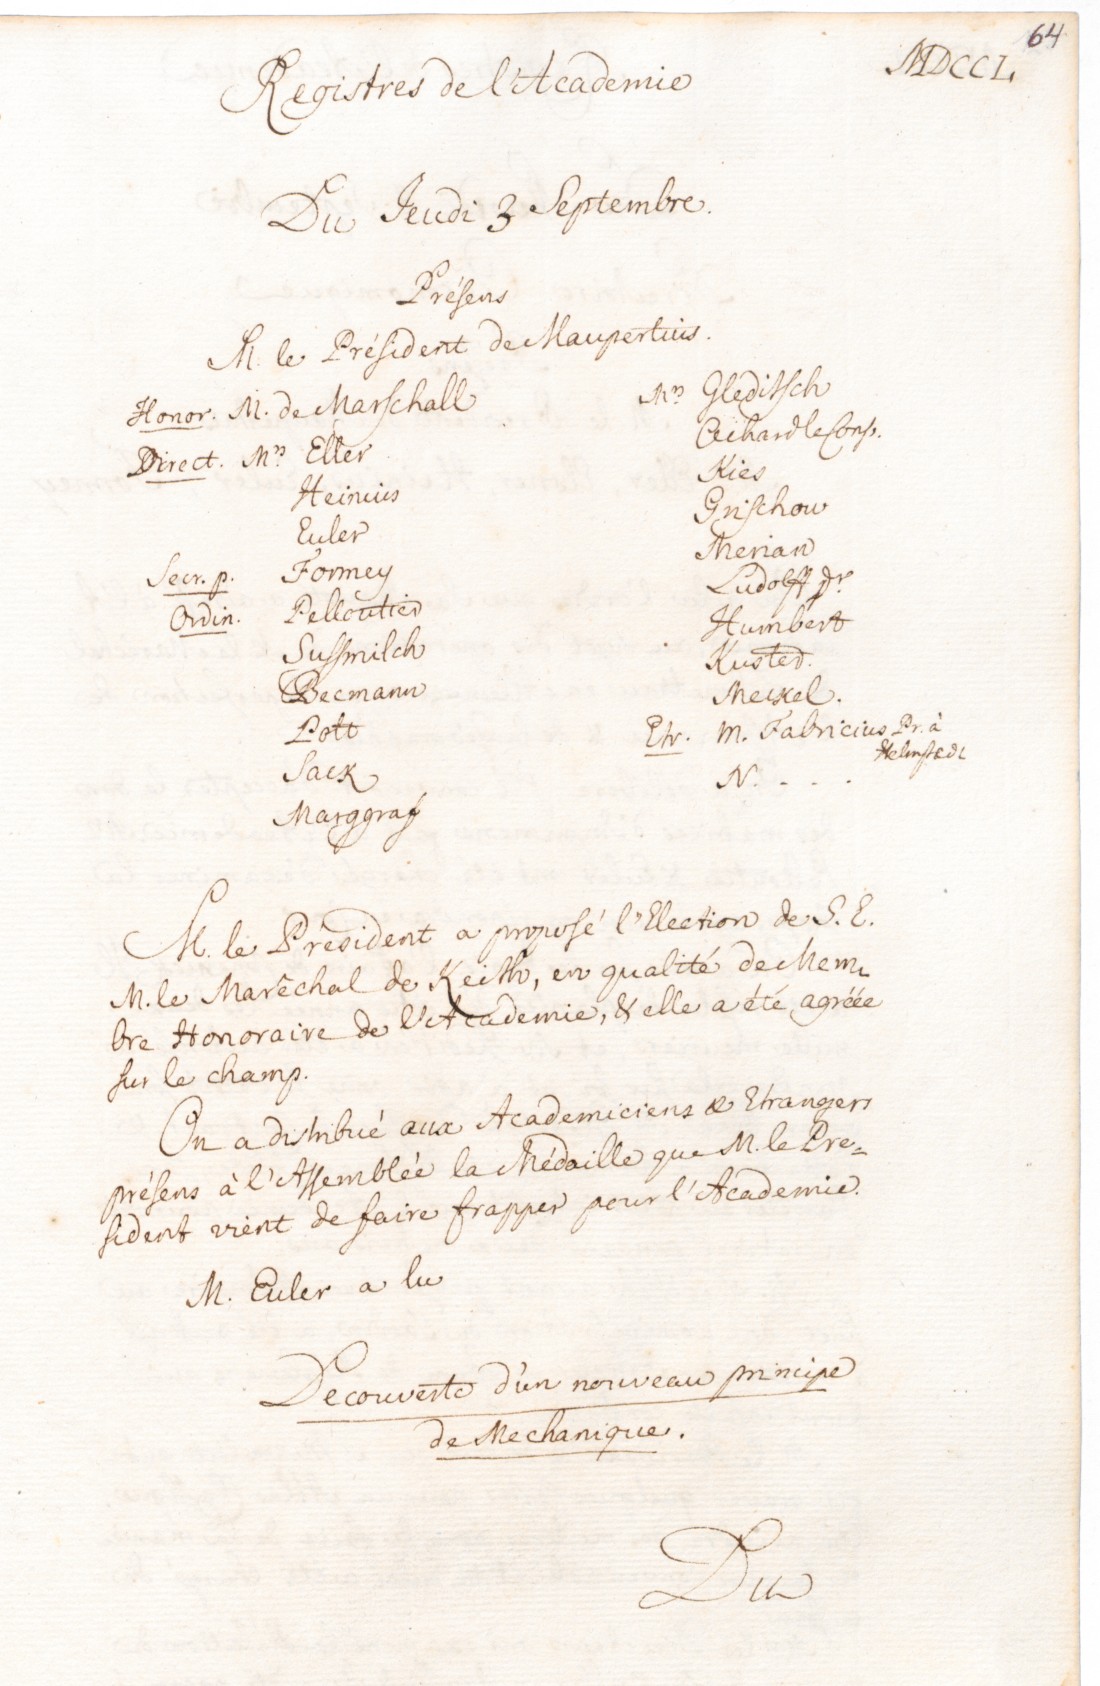 64
MDCCL.
Registres de l'Academie
Du Jeudi 3 Septembre.
Présens
M. le Président de Maupertuis.
Honor. M. de Marschall
Direct. Mrs Eller
Heinius
Euler
Secr. p. Formey
Ordin. Pelloutier
Sussmilch
Becmann
Pott
Sack
Marggraf
Mrs Gleditsch
Achard le Cons.
Kies
Grischow
Merian
Ludolff Jr.
Humbert
Kusted.
Meckel.
Etr. M. Fabricius Pr. à
Helmstedt
N. - - -
M. le Président a proposé l'Election de S. E.
M. le Maréchal de Keith, en qualité de Mem-
bre Honoraire de l'Academie, & elle a été agréée
sur le champ.
On a distribué aux Academiciens & Etrangers
présens à l'Assemblée la Médaille que M. le Pre=
sident vient de faire frapper pour l'Academie.
M. Euler a lu
Decouverte d'un nouveau principe
de Mechanique.
Du